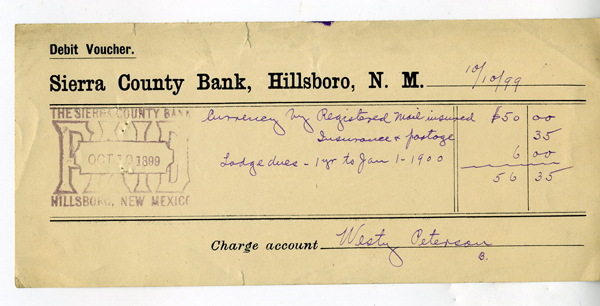 Debit Voucher.
Sierra County Bank, Hillsboro, N. M. 10/10/99
THE SIERRA COUNTY BANK
PAID
OCT 10 1899
HILLSBORO, NEW MEXICO
Currency by Registered Mail insured $50 00
Insurance + postage 35
Lodge dues - 1 yr to Jan 1 - 1900 6 00
56 35
Charge account Westy Peterson
B.